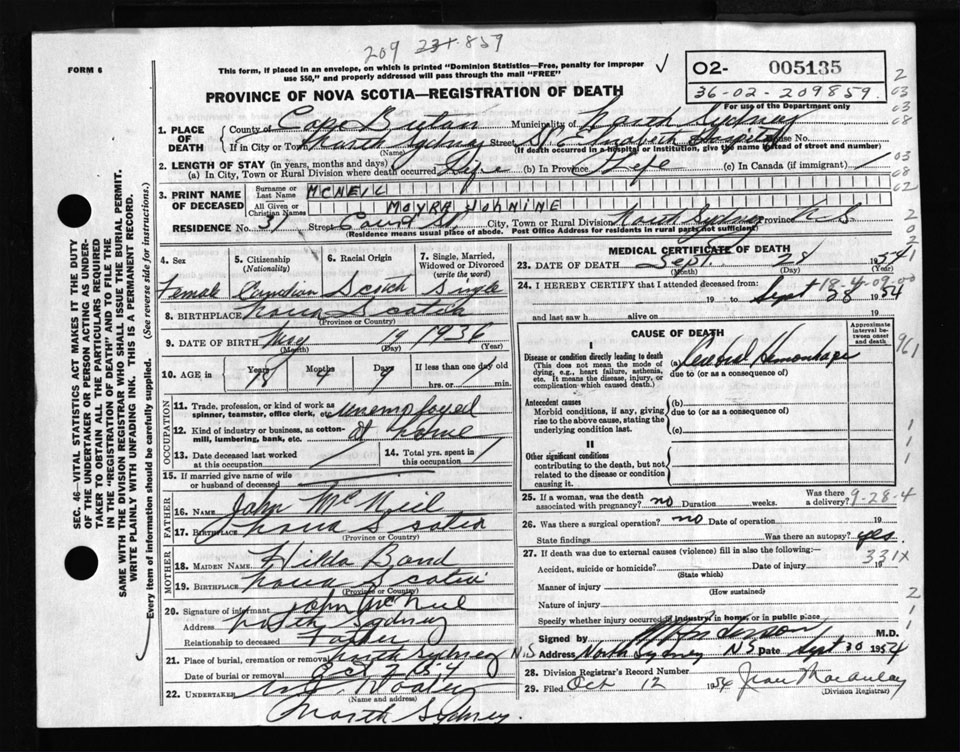 209 231.859
FORM 6
This form, if placed in an envelope, on which is printed "Dominion Statistics—Free, penalty for improper
use $50," and properly addressed will pass through the mail "FREE"
O2- 005135
36-02-209859
For use of the Department only
PROVINCE OF NOVA SCOTIA—REGISTRATION OF DEATH
1. PLACE OF DEATH
County of Cape Breton Municipality of North Sydney
If in City or Town North Sydney (Name) Street St Elizabeth Hospital House No.
(If death occurred in a hospital or institution, give the name instead of street and number)
2. LENGTH OF STAY (in years, months and days)
(a) In City, Town or Rural Division where death occurred Life (b) In Province Life (c) In Canada (if immigrant) /
3. PRINT NAME OF DECEASED
Surname or Last Name MCNEIL
All Given or Christian Names MOYRA JOHNINE
RESIDENCE No. 31 Street Court St, City, Town or Rural Division North Sydney Province N.S
(Residence means usual place of abode. Post Office Address for residents in rural parts not sufficient)
4. Sex
Female
5. Citizenship (Nationality)
Canadian
6. Racial Origin
Scotch
7. Single, Married, Widowed or Divorced (write the word)
Single
8. BIRTHPLACE Nova Scotia
(Province or Country)
9. DATE OF BIRTH May 19 1936
(Month) (Day) (Year)
10. AGE in Years 18 Months 4 Days 9 If less than one day old
hrs. or min.
OCCUPATION
11. Trade, profession, or kind of work as spinner, teamster, office clerk, etc. unemployed
12. Kind of industry or business, as cotton-mill, lumbering, bank, etc. at home
13. Date deceased last worked at this occupation /
14. Total yrs. spent in this occupation /
15. If married give name of wife or husband of deceased
FATHER
16. Name John McNeil
17. Birthplace Nova Scotia
(Province or Country)
MOTHER
18. MAIDEN NAME Hilda Bond
19. BIRTHPLACE Nova Scotia
(Province or Country)
20. Signature of informant John McNeil
Address North Sydney
Relationship to deceased Father
21. Place of burial, cremation or removal North Sydney N.S
Date of burial or removal Oct 1 54
22. UNDERTAKER
(Name and address)
North Sydney.
MEDICAL CERTIFICATE OF DEATH
23. DATE OF DEATH Sept. 28 1954
(Month) (Day) (Year)
18-4-09-00
24. I HEREBY CERTIFY that I attended deceased from:
19 to Sept 28 1954
and last saw h alive on 19
CAUSE OF DEATH
Approximate interval between onset and death
I
Disease or condition directly leading to death
(This does not mean the mode of dying, e.g., heart failure, asthenia, etc. It means the disease, injury, or complication which caused death.)
(a) Cerebral Hemorrhage
due to (or as a consequence of)
Antecedent causes
Morbid conditions, if any, giving rise to the above cause, stating the underlying condition last.
(b)
due to (or as a consequence of)
(c)
II
Other significant conditions
contributing to the death, but not related to the disease or condition causing it.
25. If a woman, was the death associated with pregnancy? no Duration weeks. Was there a delivery?
9-28-4
26. Was there a surgical operation? no Date of operation 19
State findings Was there an autopsy? yes.
27. If death was due to external causes (violence) fill in also the following:—
331X
Accident, suicide or homicide? Date of injury 19
(State which)
Manner of injury
(How sustained)
Nature of injury
Specify whether injury occurred in industry, in home, or in public place
Signed by M.D.
Address North Sydney NS Date Sept 30 1954
28. Division Registrar's Record Number
29. Filed Oct 12 1954
(Division Registrar)
SEC. 46—VITAL STATISTICS ACT MAKES IT THE DUTY
OF THE UNDERTAKER OR PERSON ACTING AS UNDER-
TAKER TO OBTAIN ALL THE PARTICULARS REQUIRED
IN THE "REGISTRATION OF DEATH" AND TO FILE THE
SAME WITH THE DIVISION REGISTRAR WHO SHALL ISSUE THE BURIAL PERMIT.
WRITE PLAINLY WITH UNFADING INK. THIS IS A PERMANENT RECORD.
Every item of information should be carefully supplied. (See reverse side for instructions.)